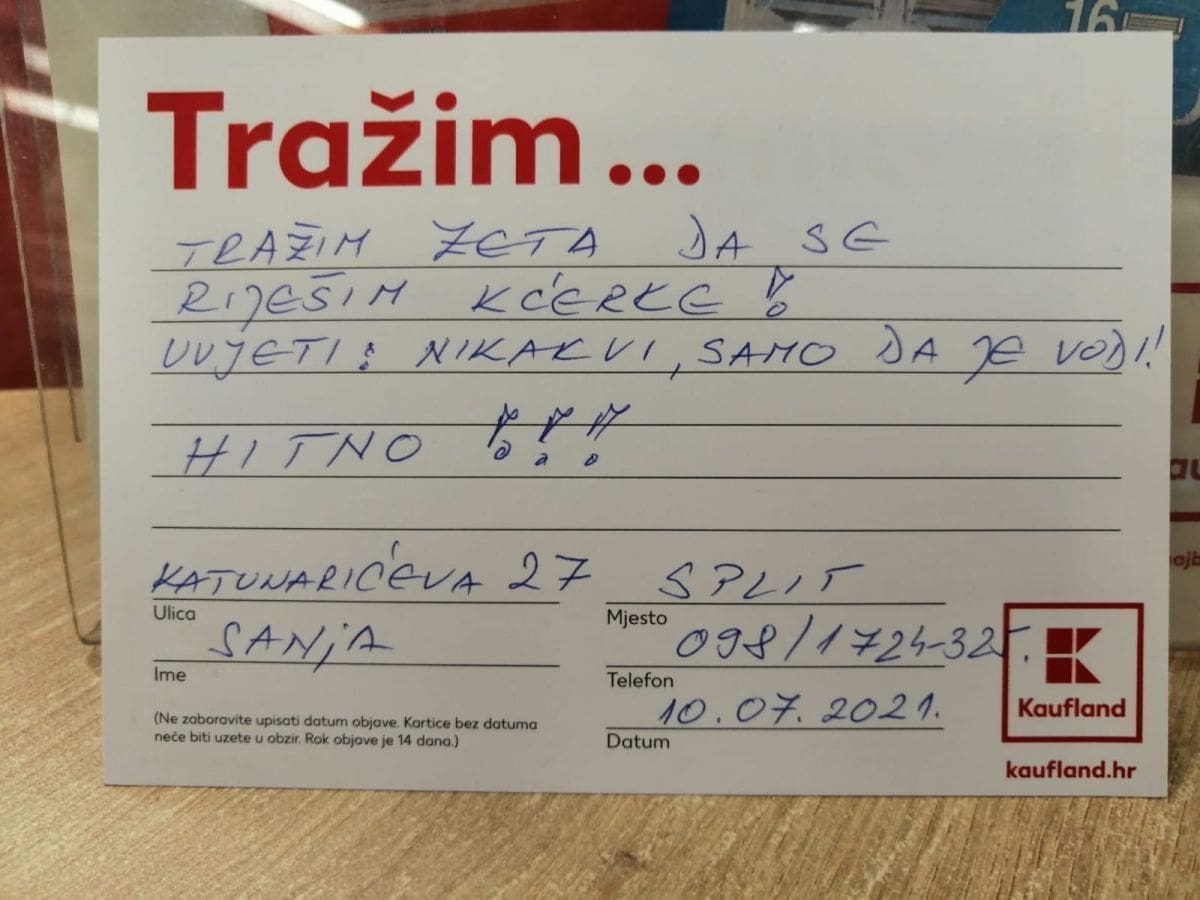 16
Tražim...
TRAŽIM ZETA DA SE
RIJEŠIM KĆERKE!
UVJETI: NIKAKVI, SAMO DA JE VODI!
HITNO !!!
KATUNARIĆEVA 27 SPLIT
Ulica Mjesto
SANjA 098/1724-325.
Ime Telefon
10.07.2021.
(Ne zaboravite upisati datum objave. Kartice bez datuma
neće biti uzete u obzir. Rok objave je 14 dana.)
Datum
Kaufland
kaufland.hr